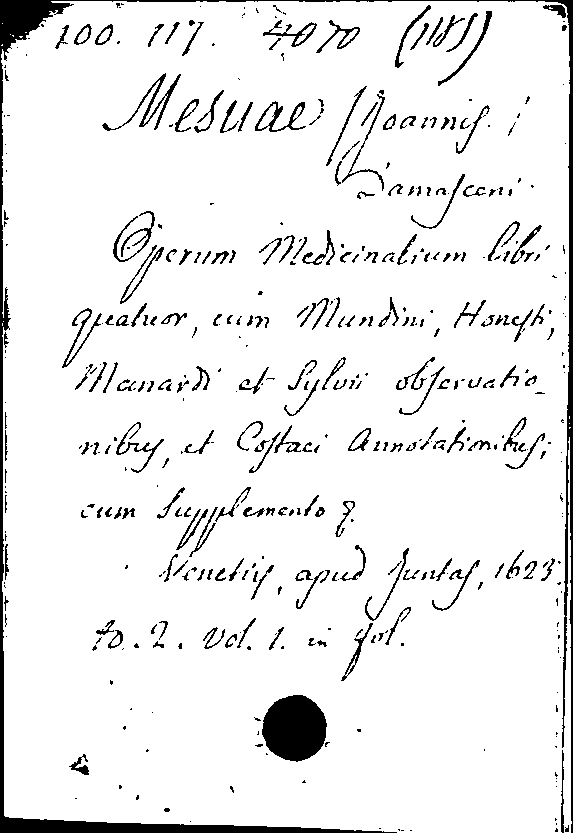 100. 117. 4070 (1181)
Mesuae (Joannis)
Damasceni.
Operum Medicinalium libri
quatuor, cum Mundini, Honesti,
Manardi et Sylvii observatio_
nibus, et Costaei Annotationibus;
cum Supplemento &.
Venetiis, apud Juntas, 1623.
to. 2. vol. 1. in fol.